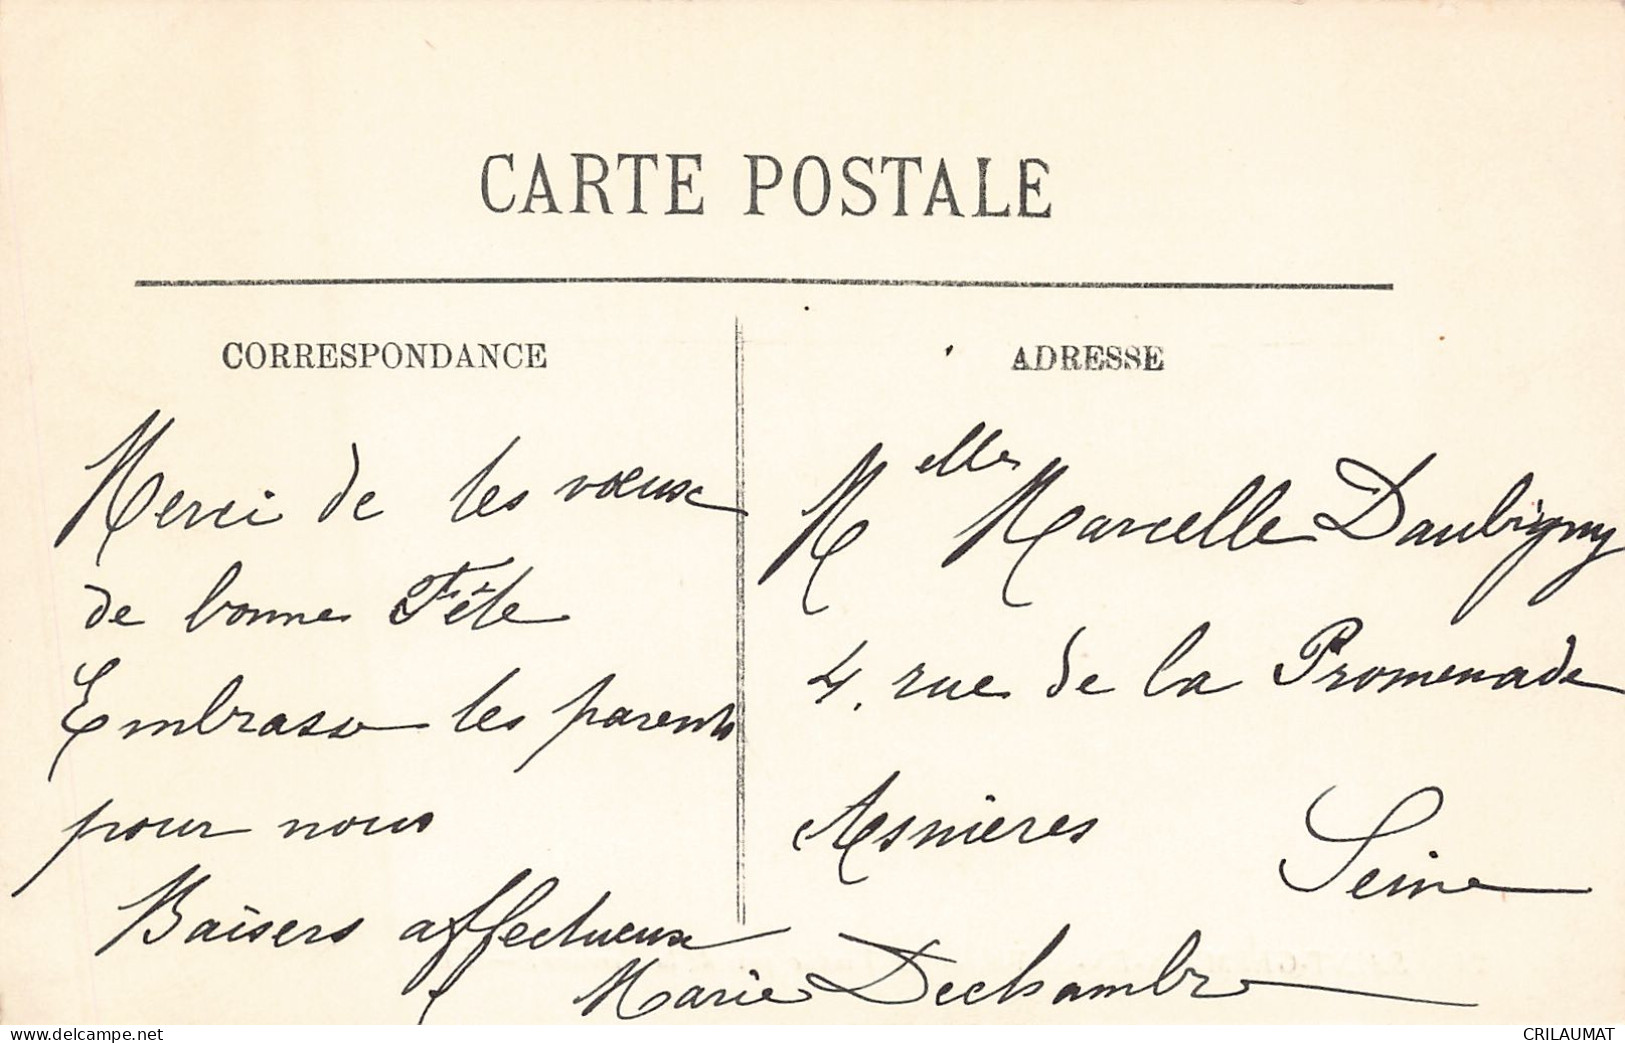 CARTE POSTALE
CORRESPONDANCE
Merci de tes voeux
de bonne Fête
Embrasse tes parents
pour nous
Baisers affectueux
Marie Dechambre
ADRESSE
Melle Marcelle Daubigny
4, rue de la Promenade
Asnières Seine
www.delcampe.net
CRILAUMAT